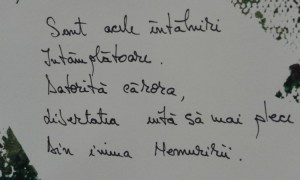 Sunt acele întâlniri
Întâmplătoare.
Datorită cărora,
Libertatea uită să mai plece
Din inima Nemuririi.